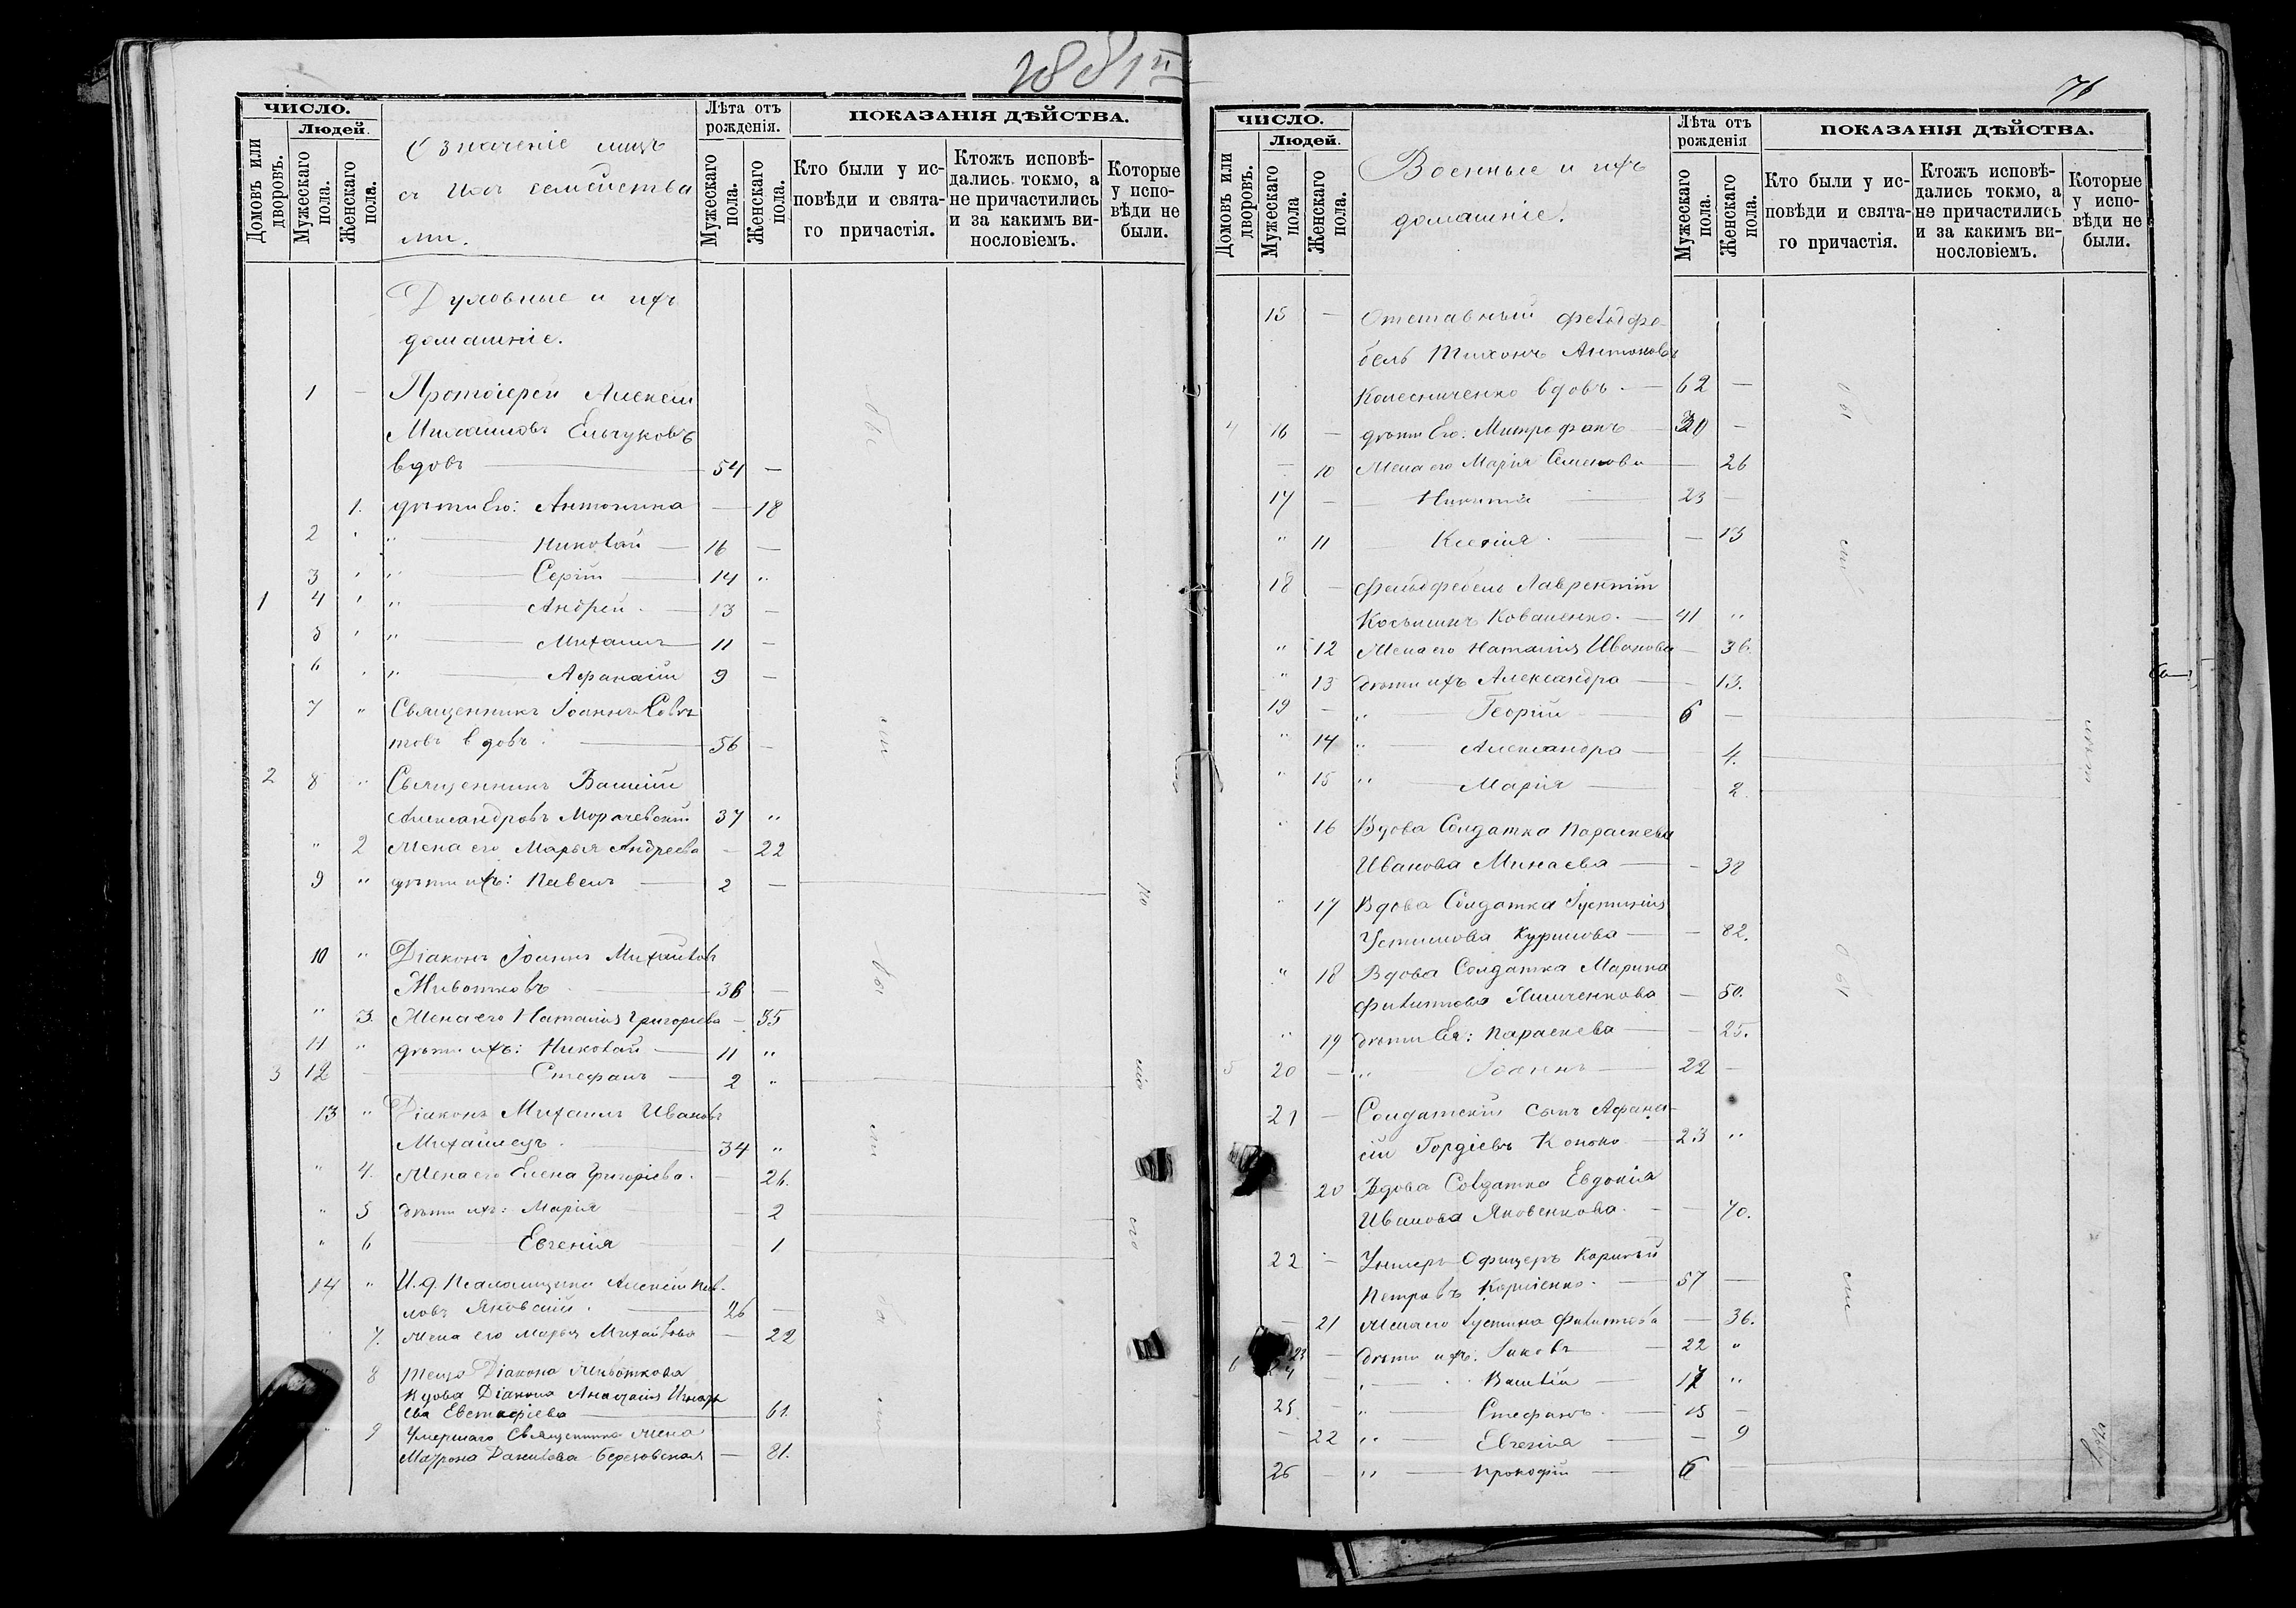 1881
76
ЧИСЛО.
Людей.
Домовъ или дворовъ.
Мужескаго пола.
Женскаго пола.
Означеніе лицъ
съ ихъ семейства
ми.
Лѣта отъ рожденія.
Мужескаго пола.
Женскаго пола.
ПОКАЗАНІЯ ДѢЙСТВА.
Кто были у исповѣди и святаго причастія.
Ктожъ исповѣдались токмо, а не причастились и за какимъ винословіемъ.
Которые у исповѣди не были.
Духовные и ихъ
домашніе.
1 — Протоіерей Алексѣй
Михаиловъ Ельчуковъ
вдовъ — 54 —
1. дѣти Его: Антонина — 18
2 " Николай — 16 —
3 " Сергій — 14 "
1 4 " Андрей — 13 —
5 " Михаилъ 11 —
6 " Афанасій 9 —
7 " Священникъ Іоаннъ
товъ вдовъ. — 56 —
2 8 " Священникъ Василій
Александровъ Морачевскій 37 "
" 2 Жена его Марья Андреева — 22
9 " дѣти ихъ: Павелъ — 2 —
10 " Діаконъ Іоаннъ Михайловъ
Животковъ — 36 —
" 3. Жена его Наталія Григорьева — 35
11 " дѣти ихъ: Николай — 11 "
3 12 — Стефанъ — 2 "
13 " Діаконъ Михаилъ Ивановъ
Михайлецъ. — 34 "
" 4. Жена его Елена Григоріева. — 26.
" 5 дѣти ихъ: Марія — 2
" 6 — Евгенія — 1
14 " И. д. Псаломщика Алексѣй Пав-
ловъ Яновскій. — 26 —
7. Жена его Марья Михайлова — 22
" 8 Теща Діакона Животкова
Вдова Діакона Анастасія Игнатье
ва Евстафіева — 61.
" 9 Умершаго Священника Жена
Матрона Данилова Березовская — 81.
ЧИСЛО.
Людей.
Домовъ или дворовъ.
Мужескаго пола
Женскаго пола.
Военные и ихъ
домашніе.
Лѣта отъ рожденія
Мужескаго пола.
Женскаго пола.
ПОКАЗАНІЯ ДѢЙСТВА.
Кто были у исповѣди и святаго причастія.
Ктожъ исповѣдались токмо, а не причастились и за какимъ винословіемъ.
Которые у исповѣди не были.
15 — Отставный фельдфе-
бель Тихонъ Антоновъ
Колесниченко вдовъ. — 62 —
4 16 — дѣти Его: Митрофанъ 30 —
— 10 Жена его Марія Семенова — 26
17 — Никита — 23 —
" 11 — Ксенія. — 13
18 — Фельдфебель Лаврентій
Косьминъ Коваленко. — 41 "
" 12 Жена его Наталія Иванова — 36.
" 13 дѣти ихъ Александра — 13.
19 — " Георгій — 6 —
" 14 " Александра — 4.
" 15 " Марія — 2
" 16 Вдова Солдатка Параскева
Иванова Минаева — 38
" 17 Вдова Солдатка Іустинія
Устимова Курилова — 82.
" 18 Вдова Солдатка Марина
Филиппова — 50.
" 19 дѣти Ея: Параскева — 25.
5 20 — " Іоаннъ — 22 —
21 — Солдатскій сынъ Афана-
сій Гордіевъ Коноко — 23 "
— 20 Вдова Солдатка Евдокія
Иванова Яковенкова. — 70.
22 — Унтеръ Офицеръ
Петровъ Корніенко. — 57 —
— 21 Жена его Іустина Филиппова — 36.
23 — дѣти ихъ: Іаковъ — 22 "
6 24 " Василій — 17 "
25 " Стефанъ. — 15 —
— 22 " Евгенія — 9
26 — " Прокофій — 6 —